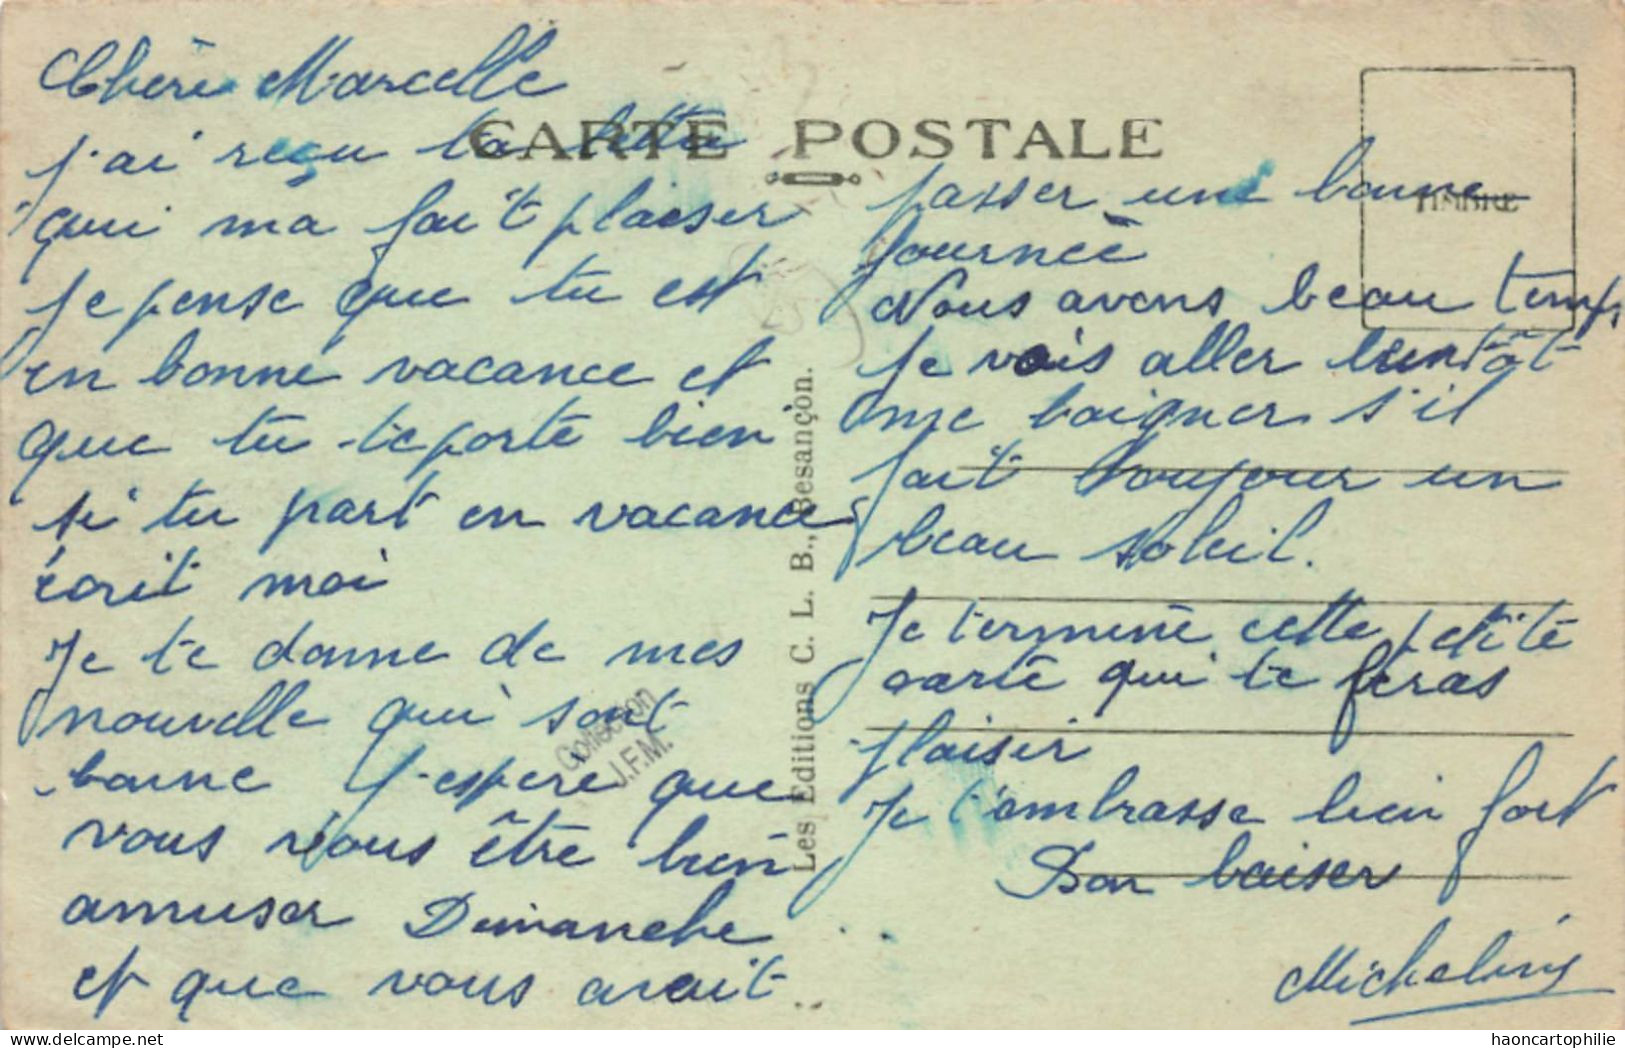 CARTE POSTALE
TIMBRE
Chère Marcelle
j'ai reçu ta lettre
qui ma fait plaiser
je pense que tu est
en bonne vacance et
que tu te porte bien
si tu part en vacances
écrit moi
Je te donne de mes
nouvelle qui sont
bonne j'espère que
vous vous être bien
amuser Dimanche
et que vous avait
passer une bonne
journée
Nous avons beau temps
je vais aller bientôt
me baigner s'il
fait toujour un
beau soleil.
Je termine cette petite
carte qui te feras
plaisir
Je t'embrasse bien fort
Bon baiser
Micheline
Les Editions C. L. B., Besançon.
Collection
J.F.M.
www.delcampe.net
haoncartophilie